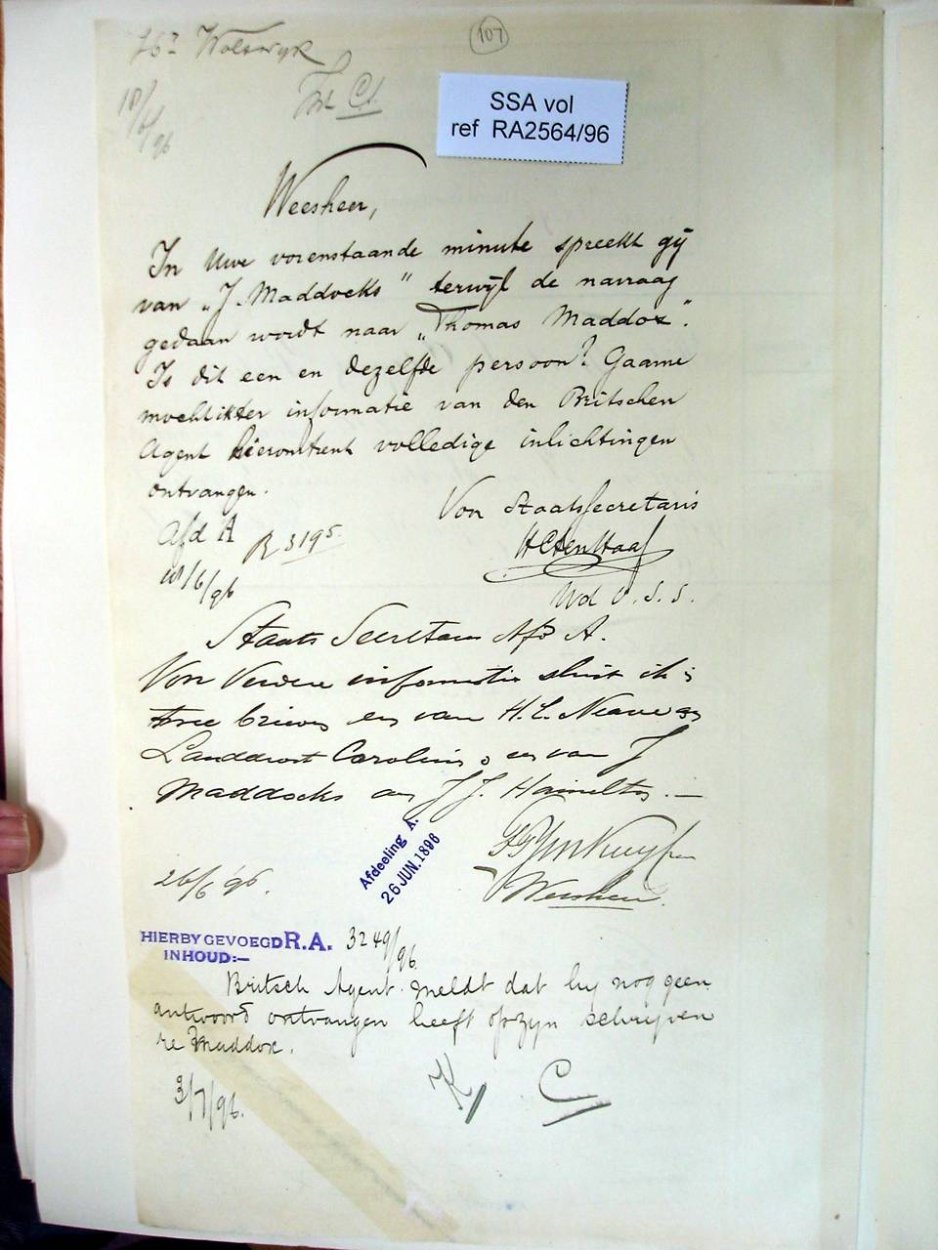 107
Wolswyk
18/6/96
C.
SSA vol
ref RA2564/96
Weesheer,
In Uwe vorenstaande minute spreekt gij
van „J. Maddocks" terwijl de navraag
gedaan wordt naar „Thomas Maddox".
Is dit een en dezelfde persoon? Gaarne
informatie van den Britschen
Agent hieromtrent volledige inlichtingen
ontvangen.
Voor Staatssecretaris
Afd A R 3195.
18/6/96
Wd O.S.S.
Staats Secretaris Afd A.
Voor Verdere informatie sluit ik
twee brieven een van H.L. Neave aan
Landdrost Carolina & een van J
Maddocks aan J.J. Hamilton.—
Afdeeling A.
26 JUN. 1896
26/6 96.
Weesheer.
HIERBY GEVOEGD R.A. 3249/96
INHOUD:—
Britsch Agent meldt dat hy nog geen
antwoord ontvangen heeft op zyn schrijven
re Maddox.
3/7/96.
K/ C/